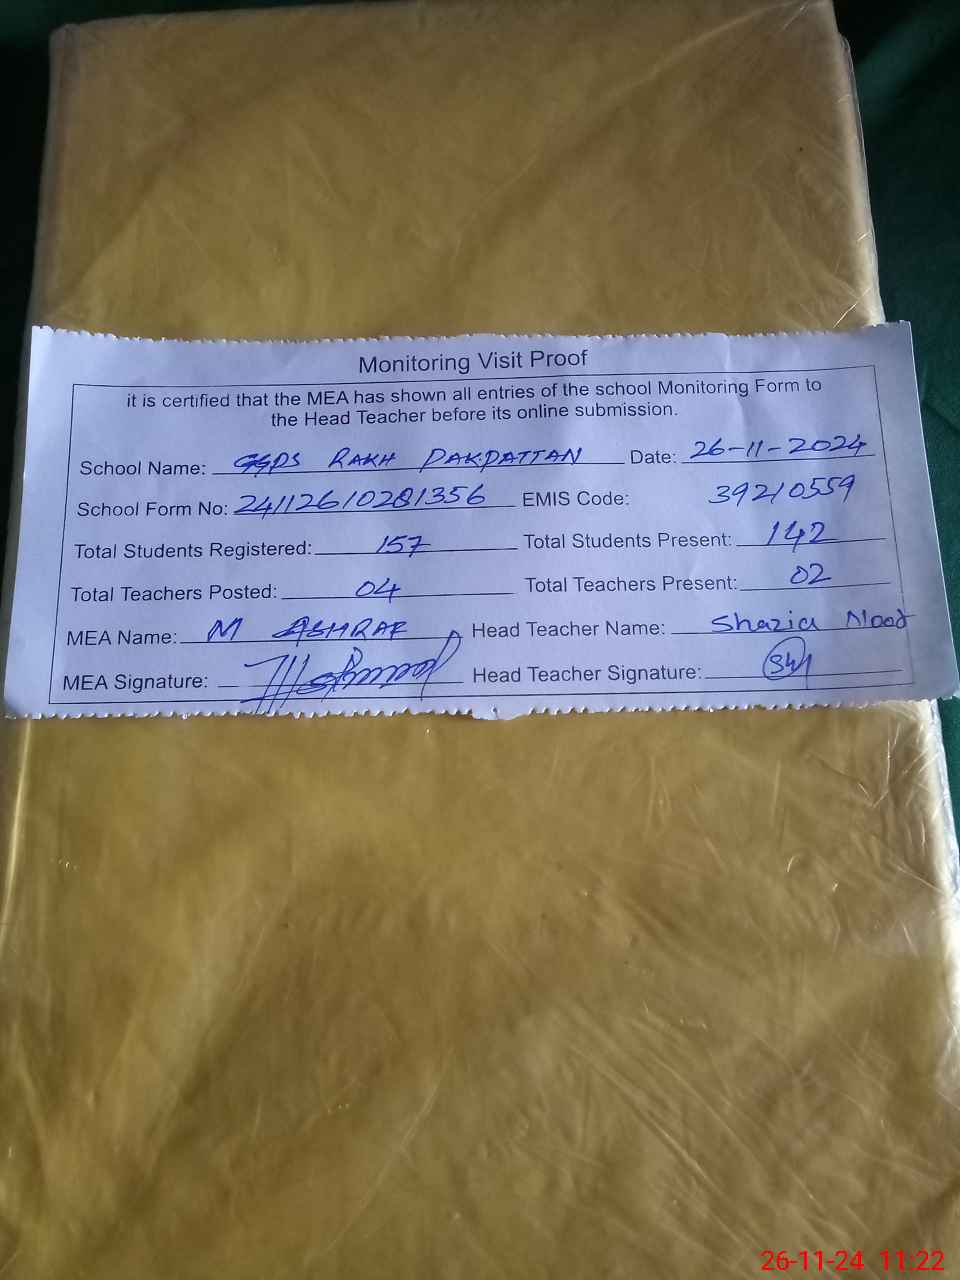 Monitoring Visit Proof
it is certified that the MEA has shown all entries of the school Monitoring Form to
the Head Teacher before its online submission.
School Name: GGPS RAKH PAKPATTAN Date: 26-11-2024
School Form No: 24112610281356 EMIS Code: 39210559
Total Students Registered: 157 Total Students Present: 142
Total Teachers Posted: 04 Total Teachers Present: 02
MEA Name: M ASHRAF Head Teacher Name: Shazia
MEA Signature: Head Teacher Signature:
26-11-24 11:22